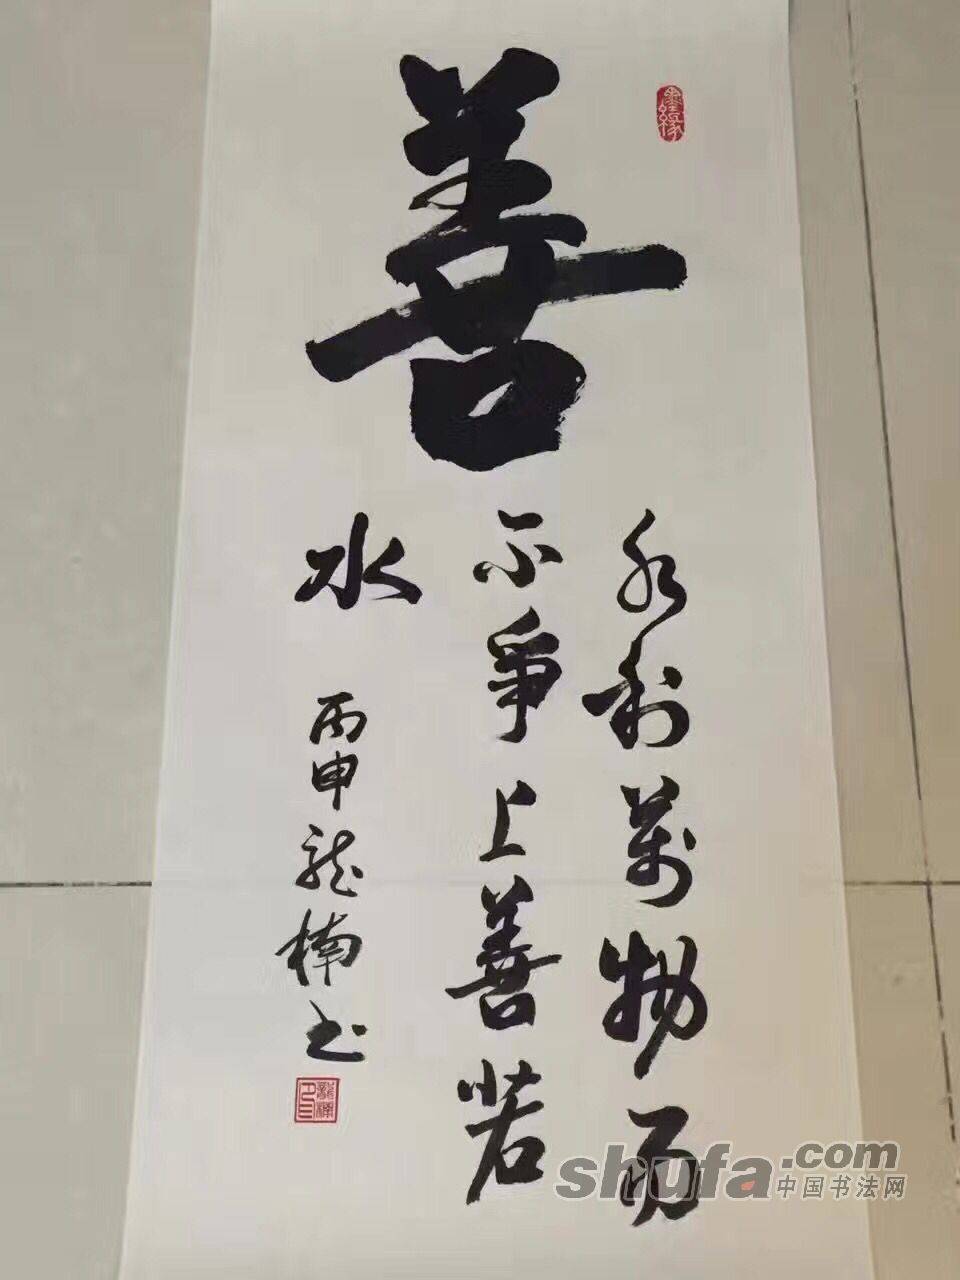 善
墨缘
水利萬物而
不爭上善若
水
丙申龙楠书
shufa.com
中国书法网